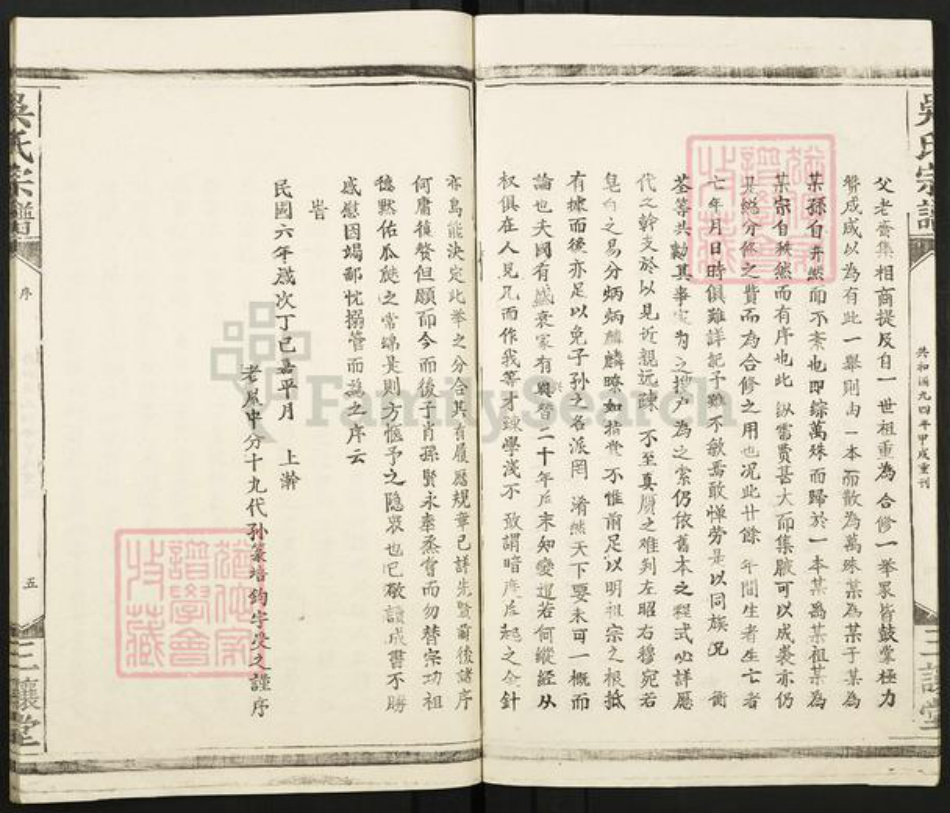 吳氏宗譜
共和國九四年甲戌重刊
三讓堂
父老耆集相商提及自一世祖重為合修一舉眾皆鼓掌極力
贊成咸以為有此一舉則由一本而散為萬殊某為某子某為
某孫自井然而不紊也即綜萬殊而歸於一本某為某祖某為
某宗自秩然而有序也此縱需費甚大而集腋可以成裘亦仍
是總分修之費而為合修之用也況此廿餘年間生者生亡者
亡年月日時俱難詳記予雖不敏焉敢憚勞是以同族兄 衡
荃等共勷其事家为之搜戶為之索仍依舊本之程式必詳歷
代之幹支於以見近親远疎不至真贋之难到左昭右穆宛若
皂白之易分炳炳麟麟瞭如指掌不惟前足以明祖宗之根抵
有據而後亦足以免子孫之各派罔淆然天下要未可一概而
論也夫國有盛衰家有興替二十年后未知變遷若何縱經从
权俱在人見凡而作我等才疎學浅不敢謂暗度后起之金針
亦烏能決定此举之分合其有履歷規章已詳先賢前後諸序
何庸複贅但願而今而後子肖孫賢永奉烝嘗而勿替宗功祖
德默佑瓜瓞之常綿是則方愜予之隐衷也已敬譜成書不勝
感慰因竭鄙忱搦管而為之序云
旹
民國六年歲次丁巳嘉平月 上澣
老凤中分十九代孙篆培鈞字受之謹序
吳氏宗譜
序
五
三讓堂
FamilySearch